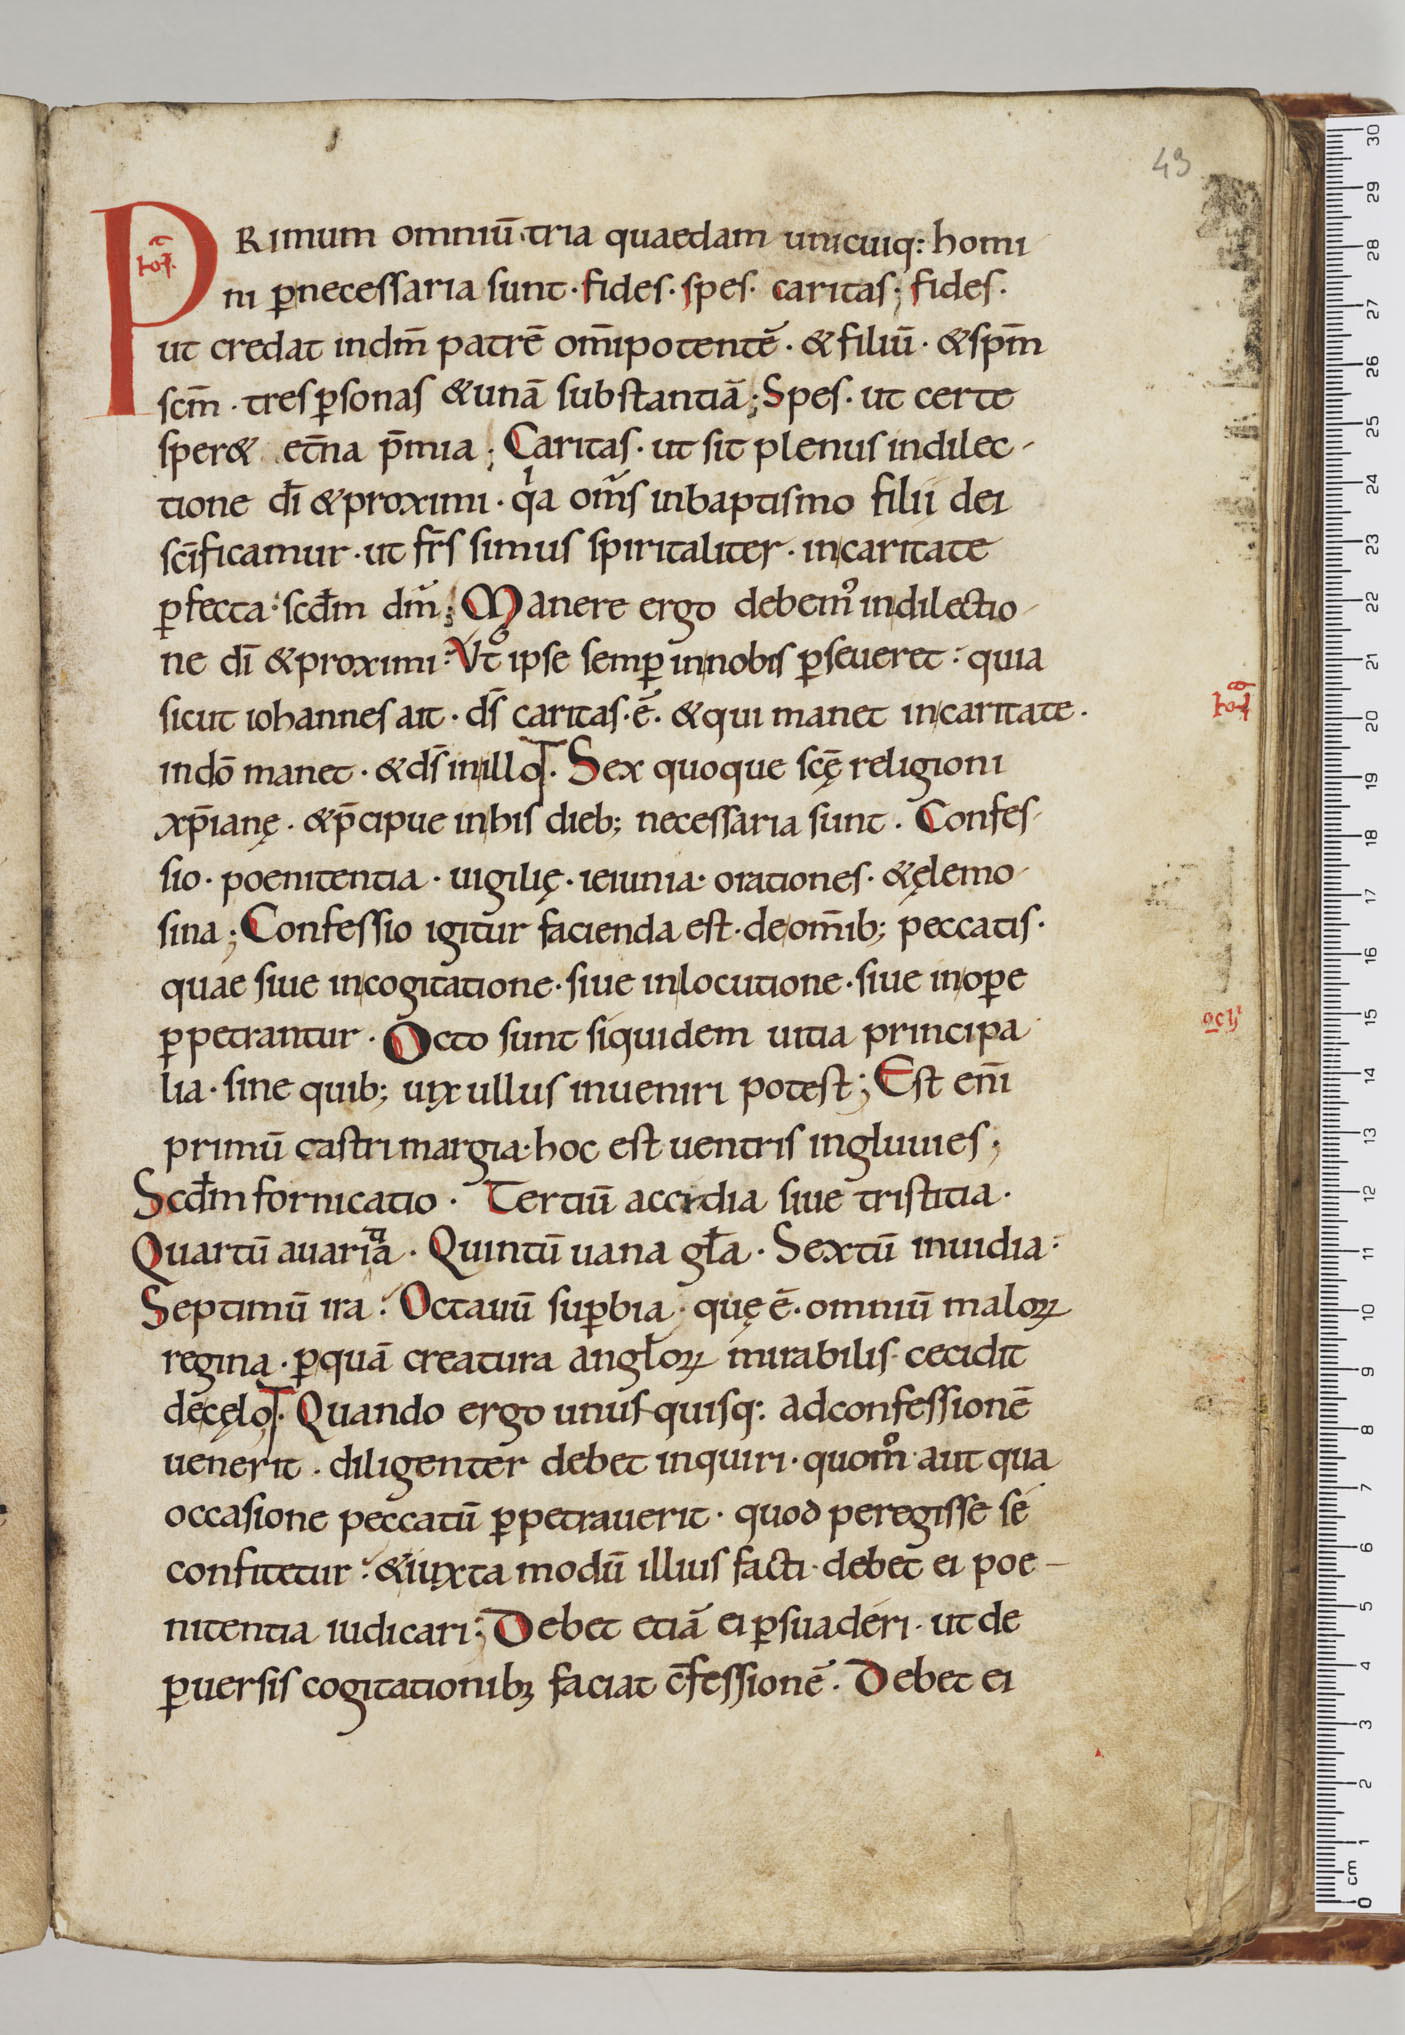 43
PRimum omniū. tria quaedam unicuiq: homi
ni ꝑnecessaria sunt · fides · spes · caritas; fides ·
ut credat indm̄ patrē om̄ipotentē · & filiū · & spm̄
scm̄ · tres ꝑsonas & unā substantiā; Spes · ut certe
sper& et̄na p̄mia; Caritas · ut sit plenus indilec-
tione dī & proximi · qia om̄s inbaptismo filii dei
scīficamur · ut fr̄s simus spiritaliter · incaritate
ꝑfecta: scd̄m dm̄; Manere ergo debem᾿ indilectio-
ne dī & proximi: Vt ipse semꝑ innobis ꝑseueret: quia
sicut iohannes ait · ds̄ caritas · ē · & qui manet incaritate ·
indō manet · & ds̄ inillo · Sex quoque scę̄ religioni
xp̄ianę · & p̄cipue inhis dieb; necessaria sunt · Confes-
sio · poenitentia · uigilię · ieiunia · orationes · & ęlemo-
sina; Confessio igitur facienda est · de om̄ib; peccatis ·
quae siue incogitatione · siue inlocutione · siue inoꝑe
ꝑpetrantur · Octo sunt siquidem uitia principa
lia · sine quib; uix ullus inueniri potest; Est enī
primū castrimargia · hoc est uentris ingluuies;
Scd̄m fornicatio · Tertiū accidia siue tristitia ·
Quartū auaritia · Quintū uana gła · Sextū inuidia:
Septimū ira: Octauū suꝑbia · quę ē · omniū maloꝝ
regina · ꝑquā creatura angłoꝝ mirabilis cecidit
decęlo · Quando ergo unusquisq: adconfessionē
uenerit · diligenter debet inquiri · quom̊ aut qua
occasione peccatū ꝑpetrauerit · quod peregisse se
confitetur: & iuxta modū illius facti · debet ei poe-
nitentia iudicari; Debet etiā ei ꝑsuaderi · ut de
ꝑuersis cogitationibꝫ faciat c̄fessionē · Debet ei
30
29
28
27
26
25
24
23
22
21
20
19
18
17
16
15
14
13
12
11
10
9
8
7
6
5
4
3
2
1
cm
0